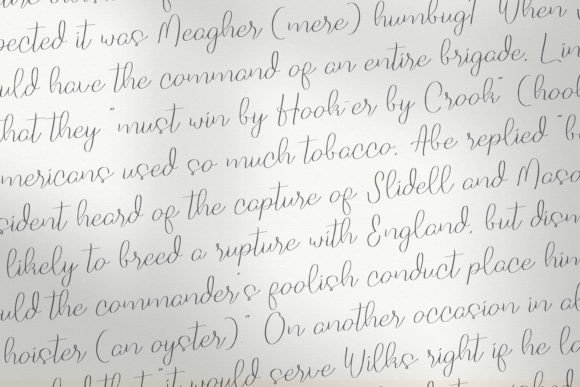 ected it was Meagher (mere) humbug! When
uld have the command of an entire brigade. Lin
hat they "must win by Hook-er by Crook" (hook
mericans used so much tobacco. Abe replied "b
sident heard of the capture of Slidell and Maso
likely to breed a rupture with England. but dism
uld the commander's foolish conduct place him
hoister (an oyster)" On another occasion in al
"it would serve Wilks right if he lo